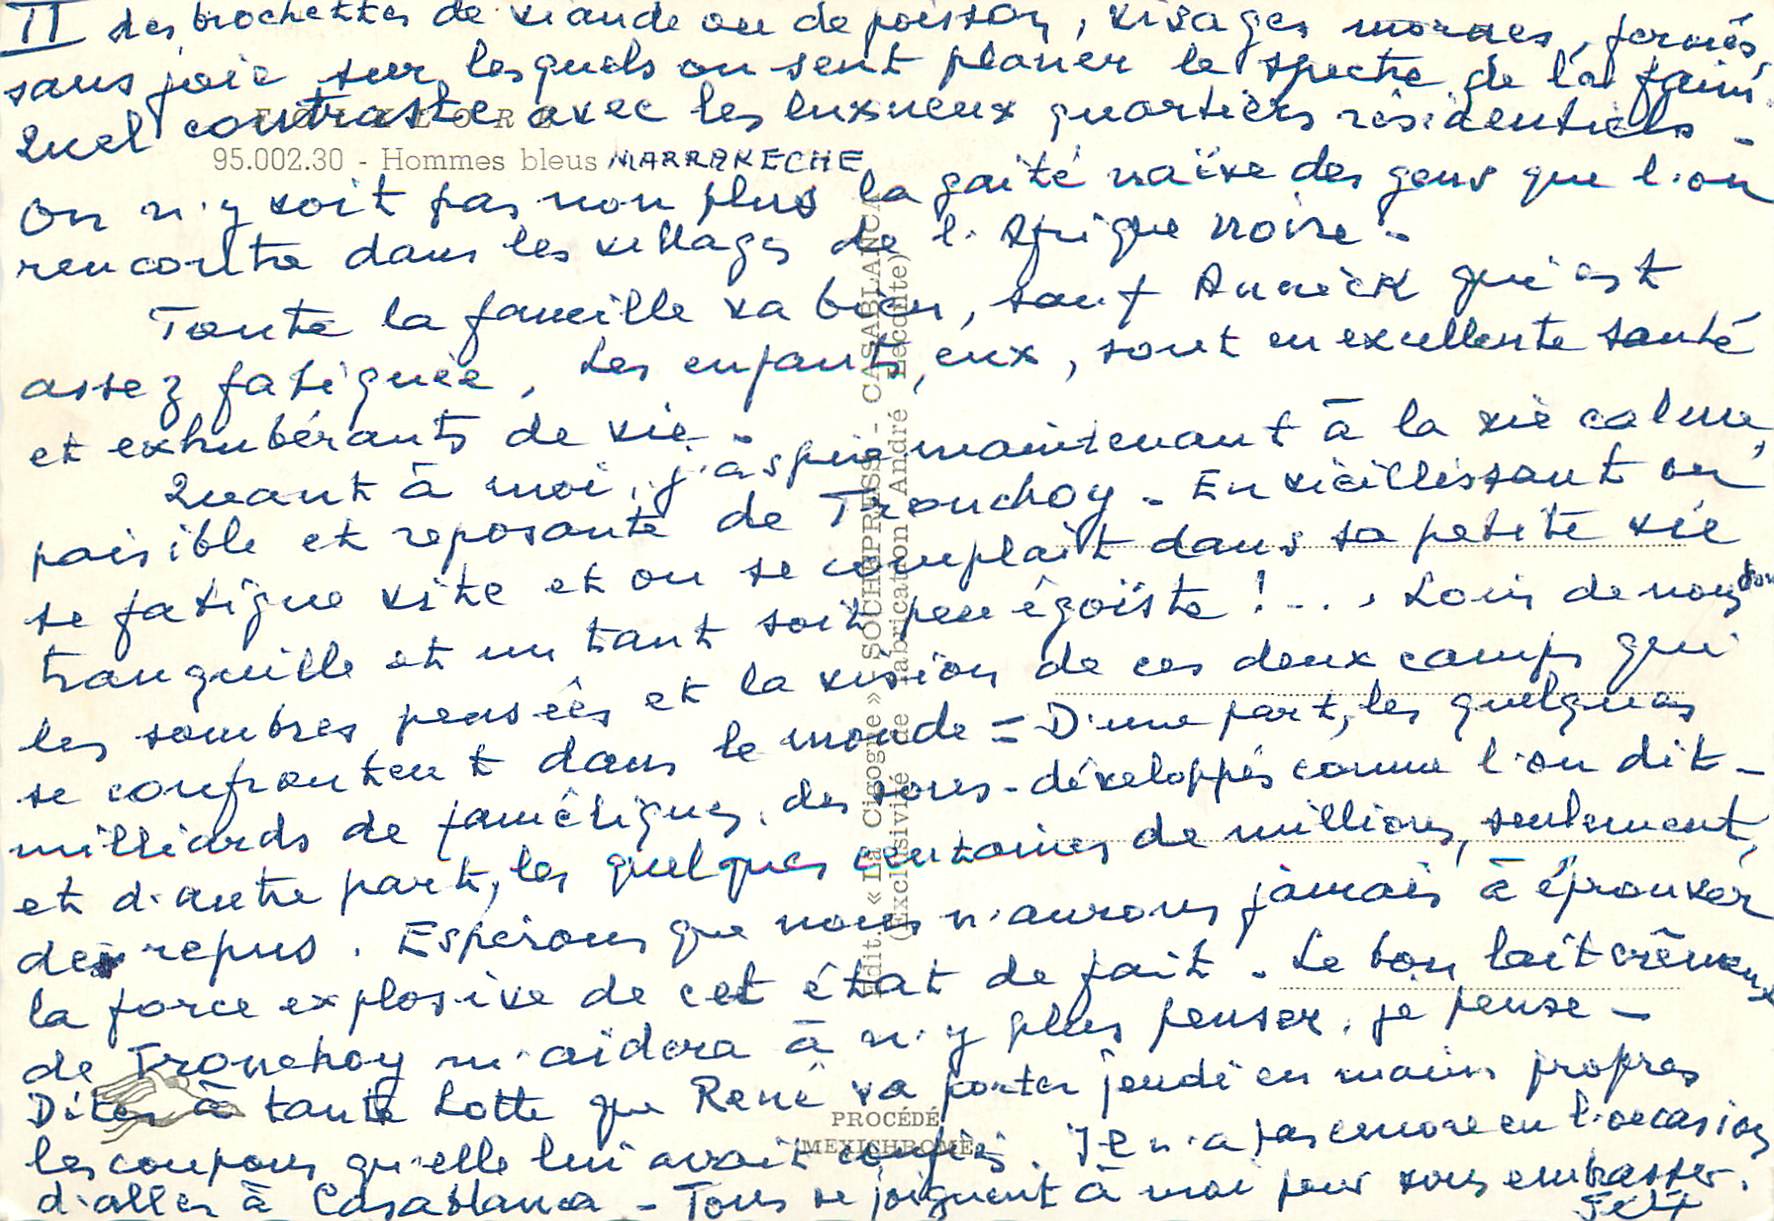 II des brochettes de viande ou de poisson, visages mornes, fermés,
sans joie sur lesquels on sent planer le spectre de la faim.
Quel contraste avec les luxueux quartiers résidentiels -
FOLKLORE
95.002.30 - Hommes bleus MARRAKECHE
On n'y voit pas non plus la gaité naïve des gens que l'on
rencontre dans les villages de l'Afrique noire -
Toute la famille va bien, sauf Annick qui est
assez fatiguée, les enfants, eux, sont en excellente santé
et exhubérants de vie -
Quant à moi, j'aspire maintenant à la vie calme,
paisible et reposante de Tronchoy - En vieillissant on
se fatigue vite et on se complait dans sa petite vie
tranquille et un tant soit peu égoïste ! ... Loin de nous
les sombres pensées et la vision de ces deux camps qui
se confrontent dans le monde = D'une part, les quelques
milliards de faméliques, des sous-développés comme l'on dit -
et d'autre part, les quelques centaines de millions, seulement,
de repus. Espérons que nous n'aurons jamais à éprouver
la force explosive de cet état de fait - Le bon lait crêmeux
de Tronchoy m'aidera à n'y plus penser, je pense -
Dites à tante Lotte que René va porter jeudi en mains propres
les coupons qu'elle lui avait confiés. Il n'a pas encore eu l'occasion
d'aller à Casablanca - Tous se joignent à moi pour vous embrasser.
Edit. « La Cigogne » SOCHEPRESS - CASABLANCA
(Exclusivité de fabrication André Leconte)
PROCÉDÉ
MEXICHROME